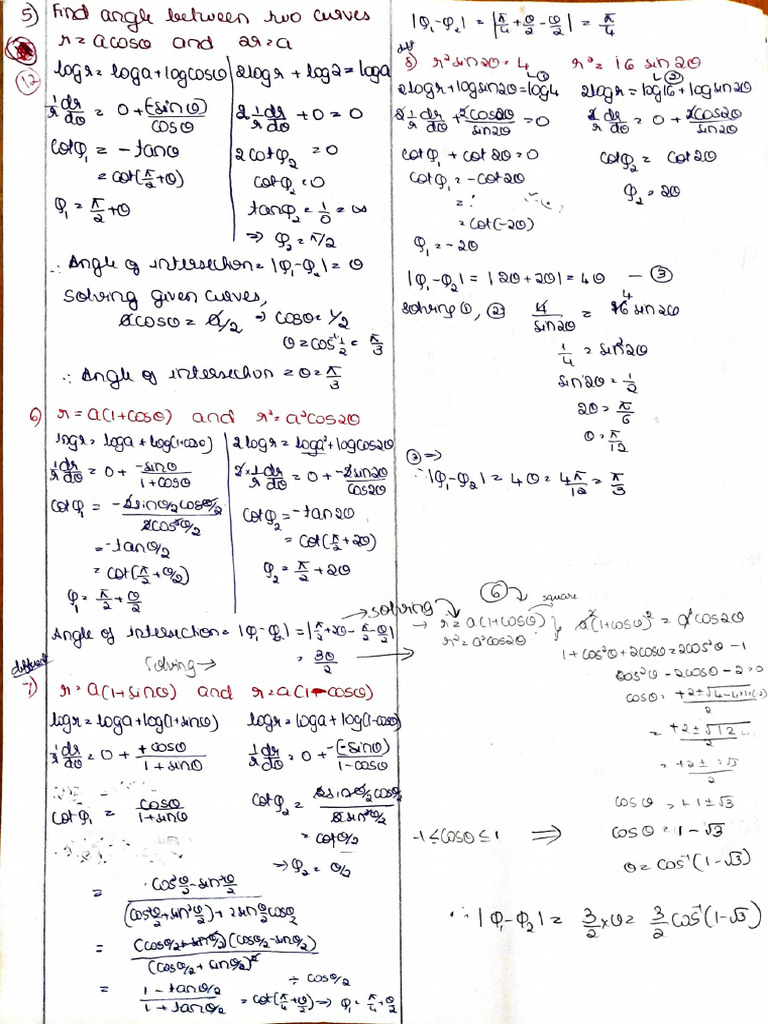 5) Find angle between two curves
r = a cosθ and 2r = a
(12)
log r = log a + log cosθ | 2 log r + log 2 = log a
1/r dr/dθ = 0 + (-sinθ)/cosθ | 2 1/r dr/dθ + 0 = 0
cotφ₁ = -tanθ | 2cotφ₂ = 0
= cot(π/2 + θ) | cotφ₂ = 0
φ₁ = π/2 + θ | tanφ₂ = 1/0 = ∞
⇒ φ₂ = π/2
∴ Angle of intersection = |φ₁ - φ₂| = θ
Solving given curves,
a cosθ = a/2 ⇒ cosθ = 1/2
θ = cos⁻¹ 1/2 = π/3
∴ Angle of intersection = θ = π/3
6) r = a(1+cosθ) and r² = a² cos2θ
log r = log a + log(1+cosθ) | 2 log r = log a² + log cos2θ
1/r dr/dθ = 0 + -sinθ/1+cosθ | 2 × 1/r dr/dθ = 0 + -2sin2θ/cos2θ
cotφ₁ = -2sinθ/2 cosθ/2 / 2cos²θ/2 | cotφ₂ = -tan2θ
= -tanθ/2 | = cot(π/2 + 2θ)
= cot(π/2 + θ/2) | φ₂ = π/2 + 2θ
φ₁ = π/2 + θ/2
Angle of intersection = |φ₁ - φ₂| = |π/2 + 2θ - π/2 - θ/2|
= 3θ/2
Solving →
different
7) r = a(1+sinθ) and r = a(1-cosθ)
log r = log a + log(1+sinθ) log r = log a + log(1-cosθ)
1/r dr/dθ = 0 + +cosθ/1+sinθ 1/r dr/dθ = 0 + -(-sinθ)/1-cosθ
cotφ₁ = cosθ/1+sinθ cotφ₂ = 2sinθ/2 cosθ/2 / 2sin²θ/2
= cotθ/2
⇒ φ₂ = θ/2
= cos²θ/2 - sin²θ/2 / (cos²θ/2 + sin²θ/2) + 2sinθ/2 cosθ/2
= (cosθ/2 + sinθ/2)(cosθ/2 - sinθ/2) / (cosθ/2 + sinθ/2)²
÷ cosθ/2
= 1 - tanθ/2 / 1 + tanθ/2 = cot(π/4 + θ/2) ⇒ φ₁ = π/4 + θ/2
|φ₁ - φ₂| = |π/4 + θ/2 - θ/2| = π/4
diff
8) r² sin2θ = 4 r² = 16 sin2θ
① ②
2 log r + log sin2θ = log 4 2 log r = log 16 + log sin2θ
2 1/r dr/dθ + 2cos2θ/sin2θ = 0 2 1/r dr/dθ = 0 + 2cos2θ/sin2θ
cotφ₁ + cot2θ = 0 cotφ₂ = cot2θ
cotφ₁ = -cot2θ φ₂ = 2θ
= cot(-2θ)
φ₁ = -2θ
|φ₁ - φ₂| = |2θ + 2θ| = 4θ — ③
solving ①, ② 4/sin2θ = 16 sin2θ
4
1/4 = sin²2θ
sin2θ = 1/2
2θ = π/6
θ = π/12
③ ⇒
∴ |φ₁ - φ₂| = 4θ = 4π/12 = π/3
⑥ square
→ solving
→ r = a(1+cosθ) } a²(1+cosθ)² = a² cos2θ
r² = a² cos2θ
1 + cos²θ + 2cosθ = 2cos²θ - 1
cos²θ - 2cosθ - 2 = 0
cosθ = +2 ± √4-4×1×(-2) / 2
= +2 ± √12 / 2
cosθ = +1 ± √3
-1 ≤ cosθ ≤ 1 ⟹ cosθ = 1 - √3
θ = cos⁻¹(1-√3)
∴ |φ₁ - φ₂| = 3/2 × θ = 3/2 cos⁻¹(1-√3)